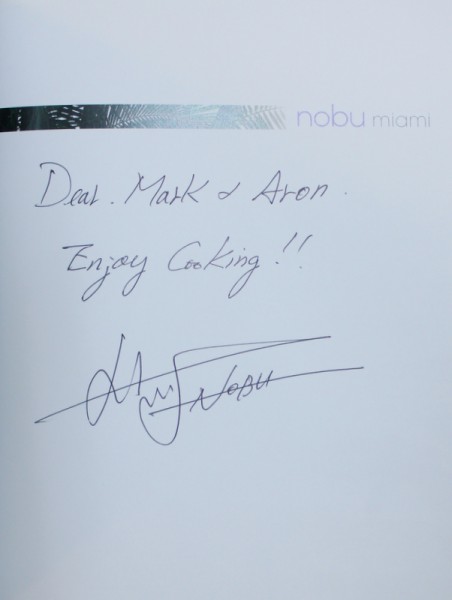 nobu miami
Dear. Mark & Aron.
Enjoy Cooking!!
NOBU